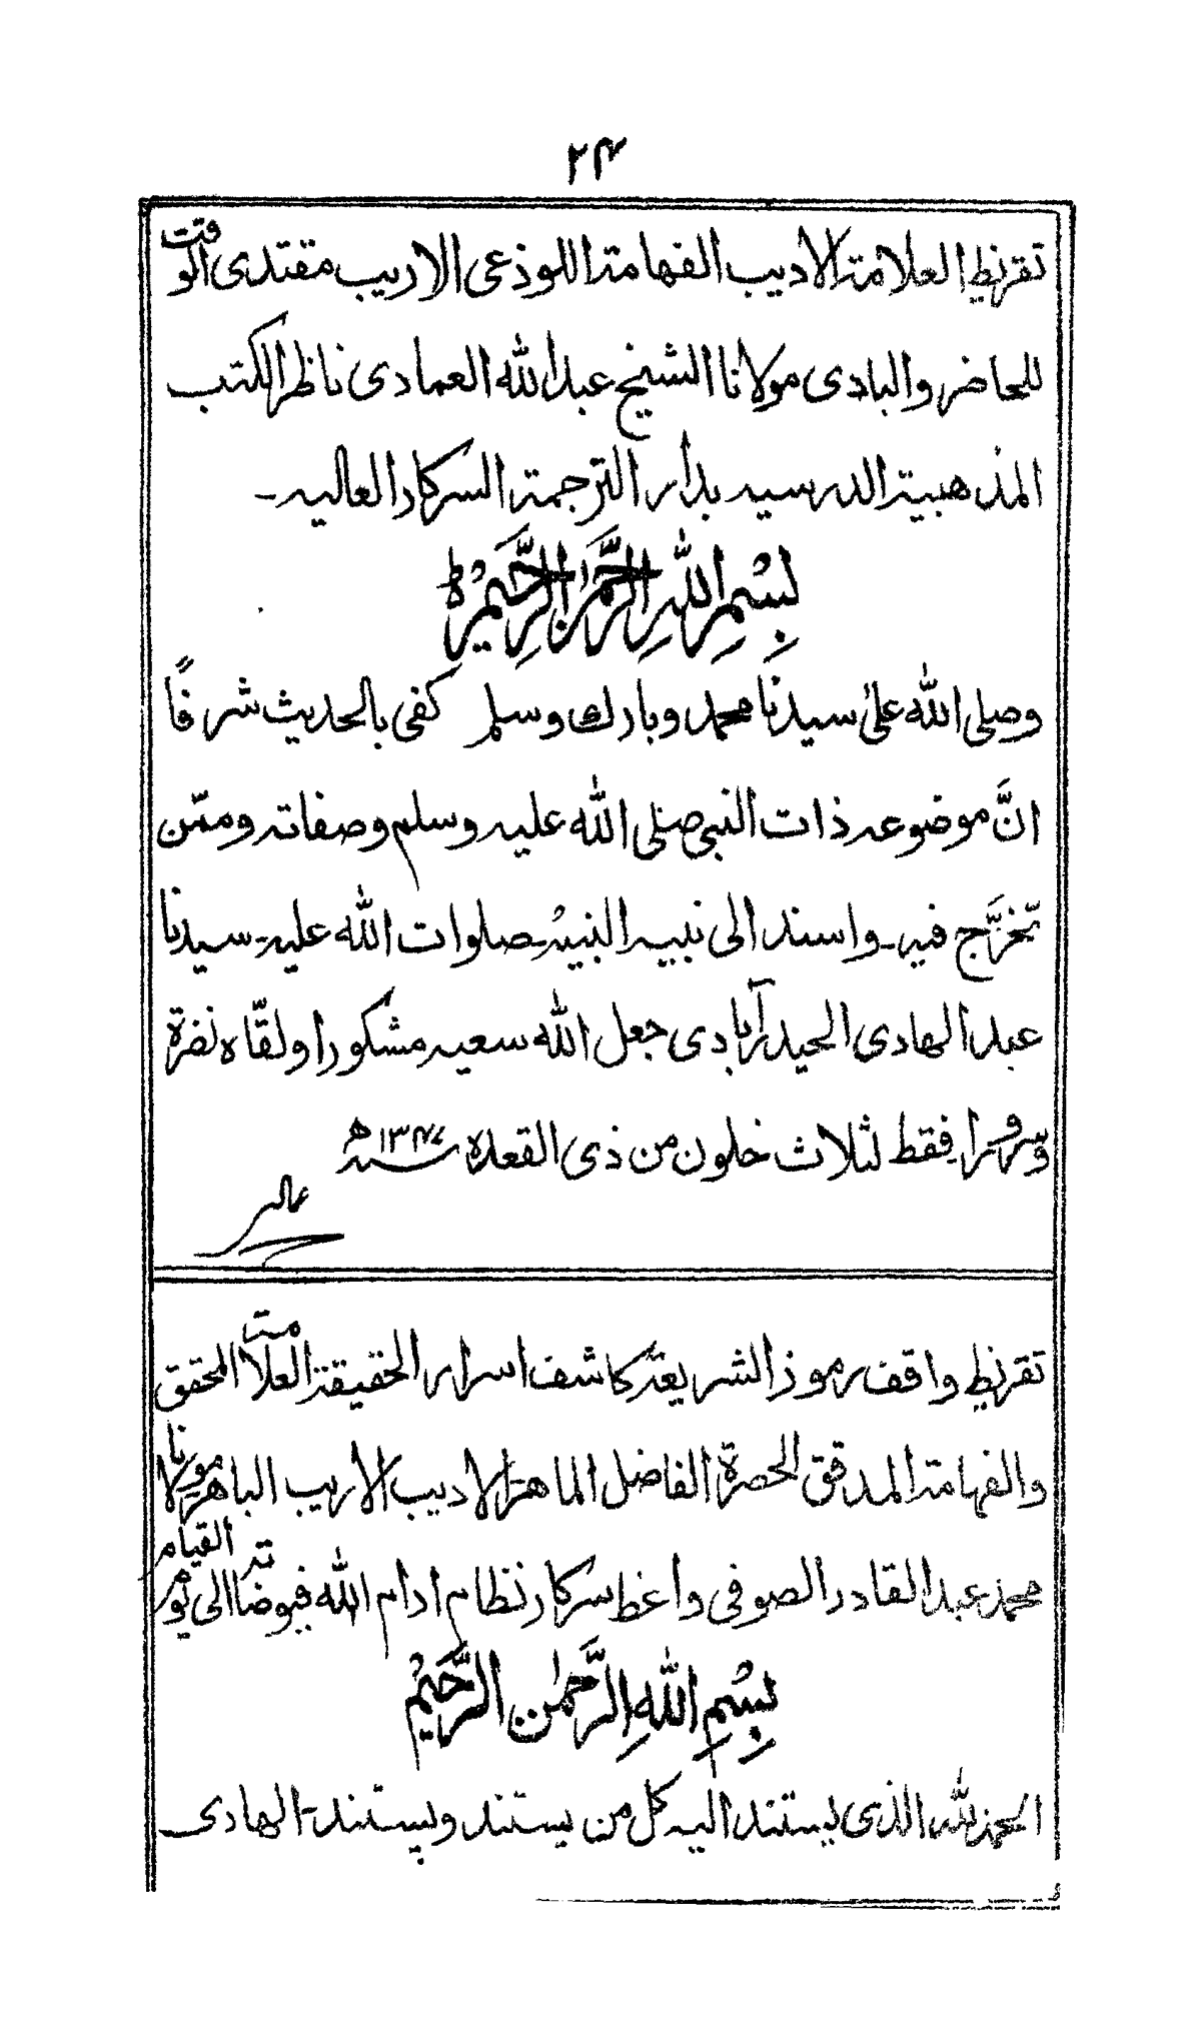 ۲۴
تقريظ العلامة الاديب الفهامة اللوذعى الاريب مقتدى الوقت
للحاضر والبادى مولانا الشيخ عبدالله العمادى ناظر الكتب
المذهبية الدرسيه بدار الترجمة السركار العاليه۔
بِسْمِ اللهِ الرَّحْمٰنِ الرَّحِيْمِ ط
وصلى الله على سيدنا محمد وبارك وسلم كفى بالحديث شرفًا
انَّ موضوعه ذات النبى صلى الله عليه وسلم وصفاته وممّن
تخرَّج فيه۔ واسند الى نبيه النبيه۔ صلوات الله عليه۔ سيدنا
عبدالهادى الحيدرآبادى جعل الله سعيه مشكورا ولقّاه نضرة
وّسرورا۔ فقط لثلاث خلون من ذى القعده سنه ۱۳۴۷ھ
تقريظ واقف رموز الشريعة كاشف اسرار الحقيقة العلامة المحقق
والفهامة المدقق الحضرة الفاضل الماهر۔ الاديب الاريب الباهر مولانا
محمد عبدالقادر الصوفى واعظ سركار نظام ادام الله فيوضاته الى يوم القيام
بِسْمِ اللهِ الرَّحْمٰنِ الرَّحِيْمِ
الحمد لله الذى يستند اليه كل من يستند ويستند۔ الهادى